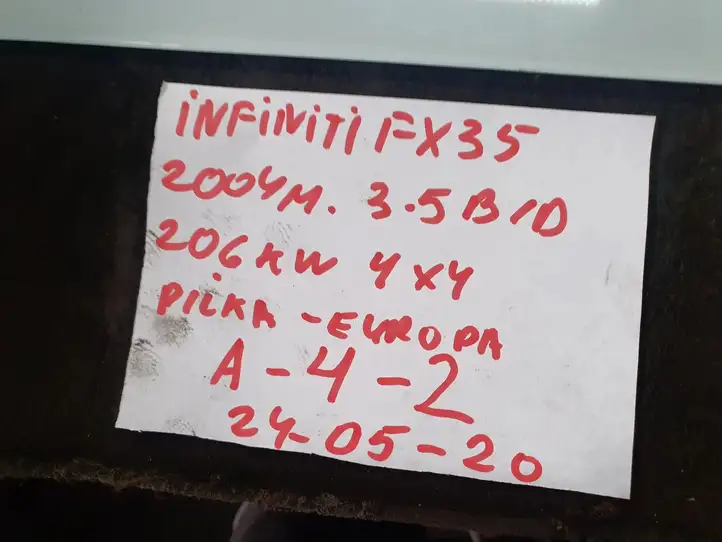 iNFiNiTi FX35
2004M. 3.5 B/D
206KW 4x4
PILKA - EUROPA
A-4-2
24-05-20